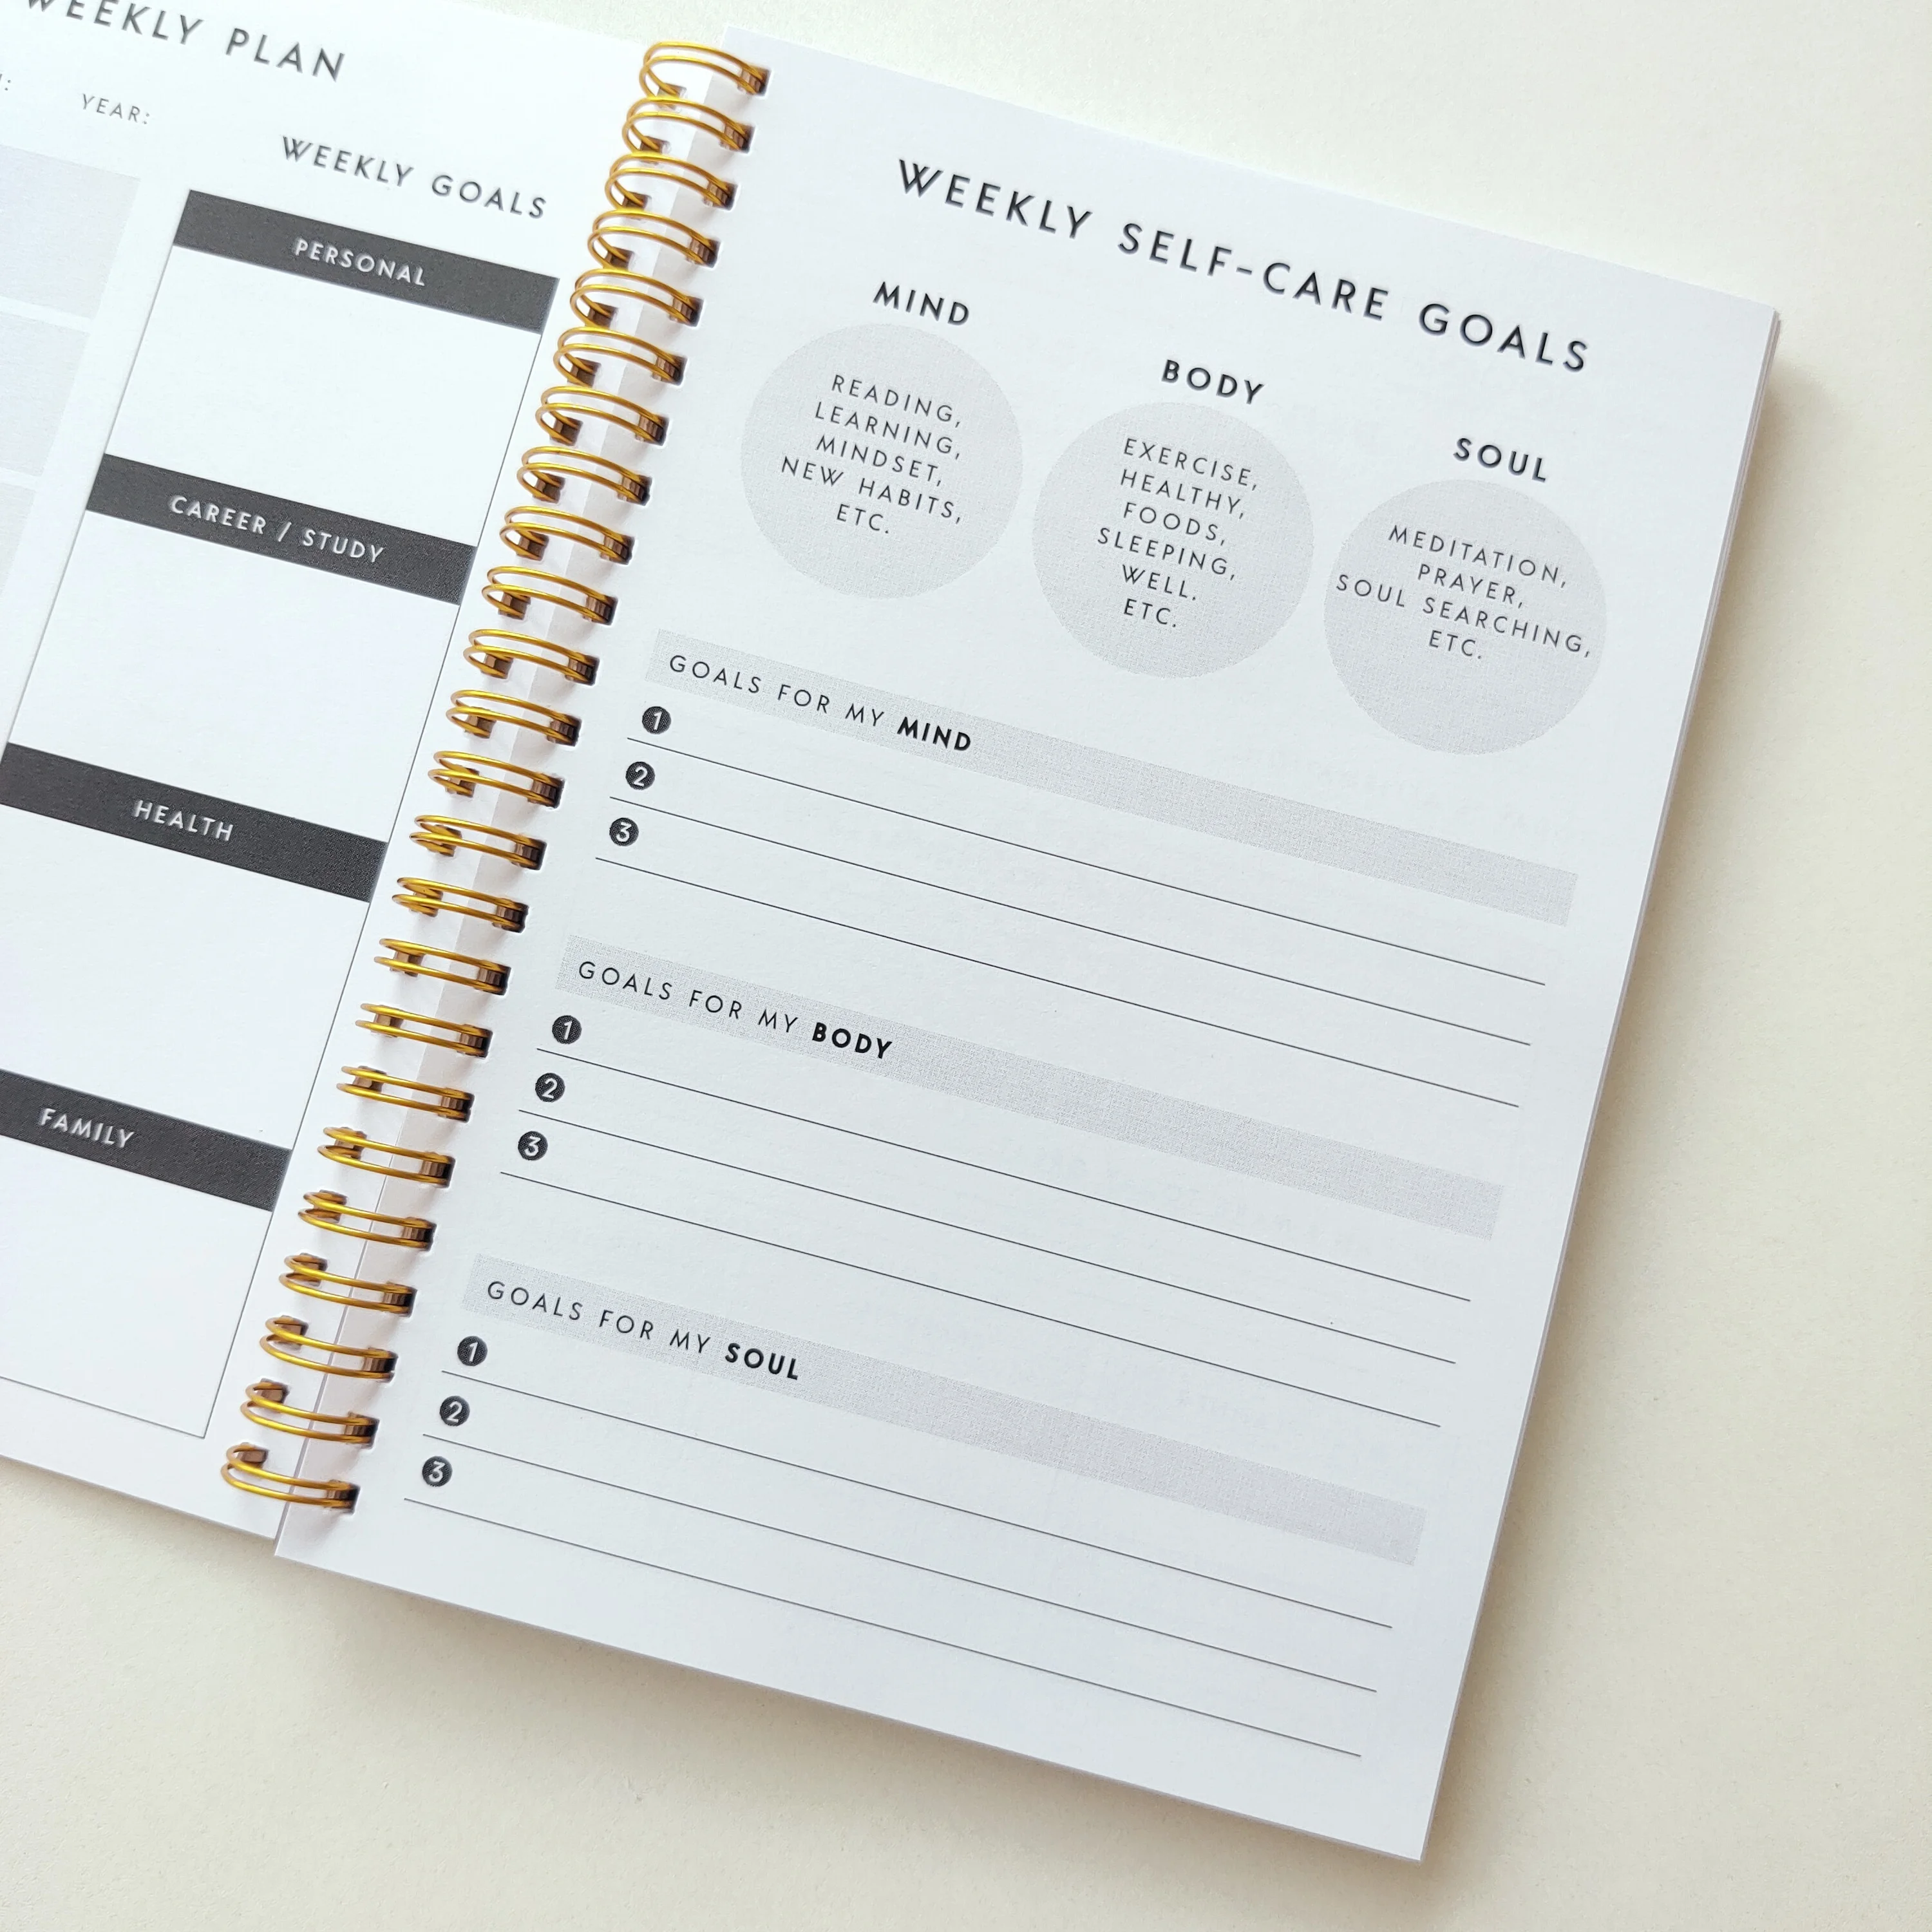 WEEKLY PLAN
YEAR:
WEEKLY GOALS
PERSONAL
CAREER / STUDY
HEALTH
FAMILY
WEEKLY SELF-CARE GOALS
MIND
READING,
LEARNING,
MINDSET,
NEW HABITS,
ETC.
BODY
EXERCISE,
HEALTHY,
FOODS,
SLEEPING,
WELL.
ETC.
SOUL
MEDITATION,
PRAYER,
SOUL SEARCHING,
ETC.
GOALS FOR MY MIND
1
2
3
GOALS FOR MY BODY
1
2
3
GOALS FOR MY SOUL
1
2
3